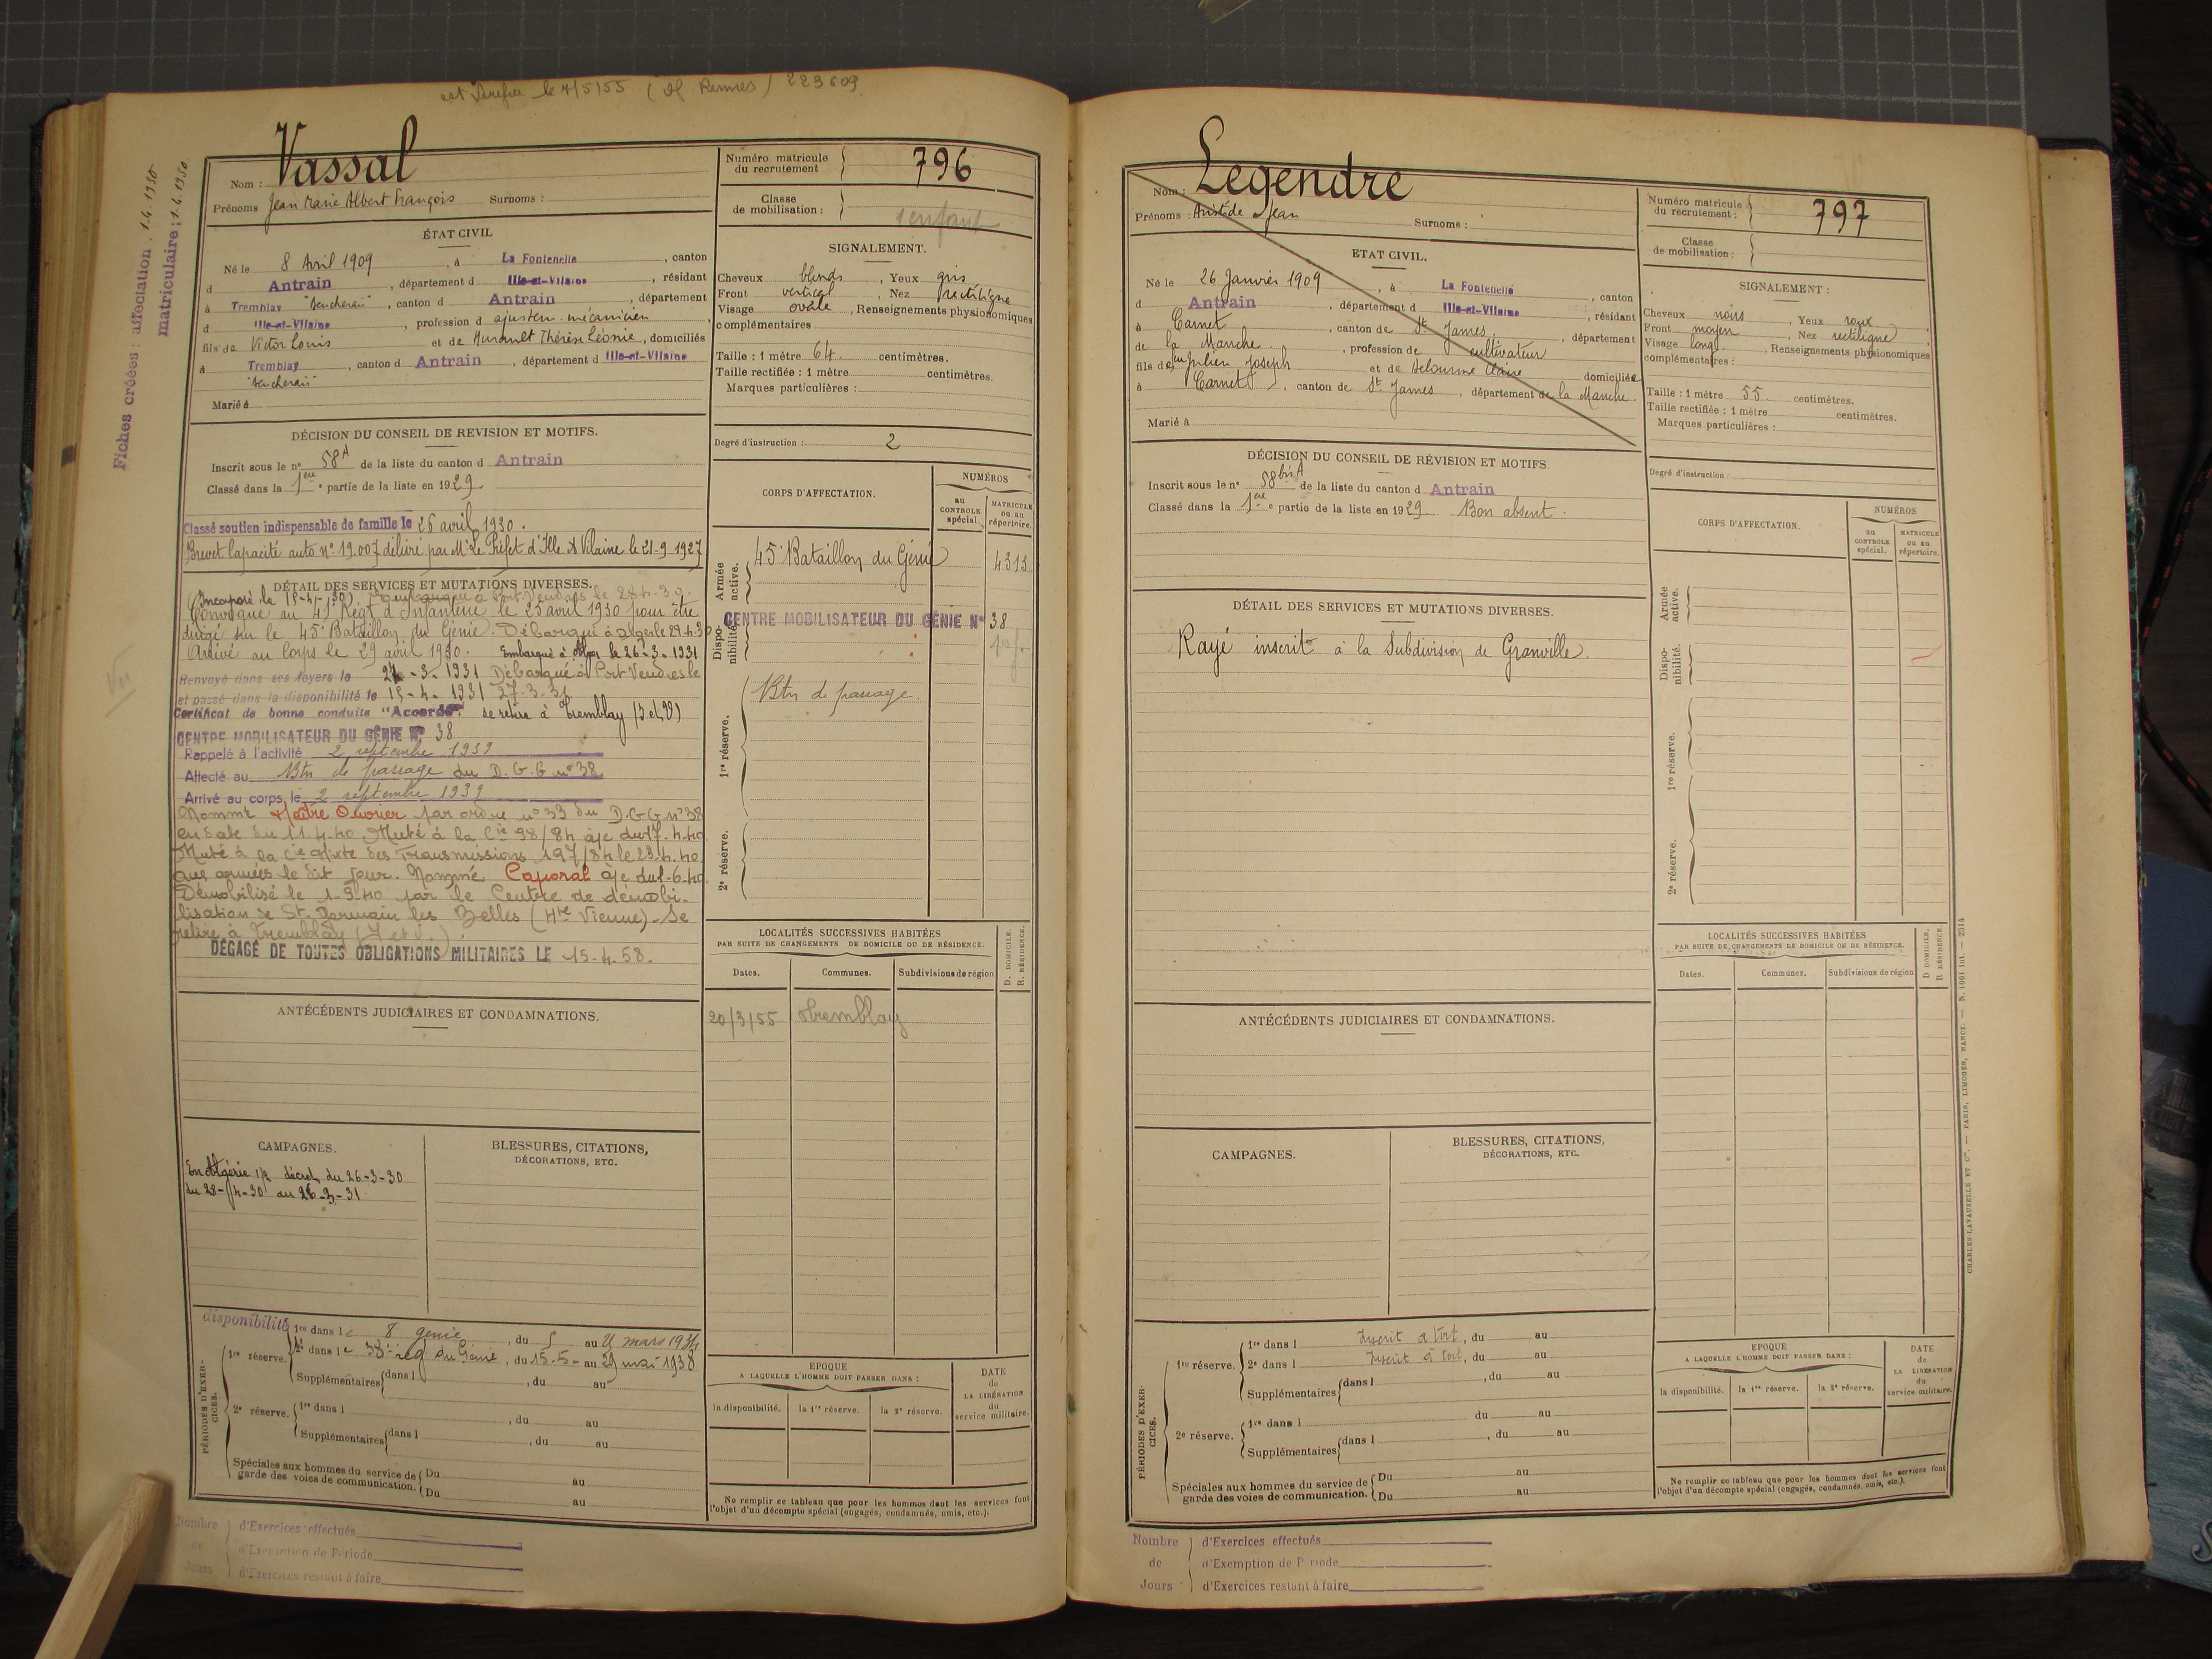 le 4/5/55 ( Rennes) 223609
Fiches créées : affectation . 1.4.1930
matriculaire : 1.4.1930
Vu
Nom : Vassal
Prénoms Jean Marie Albert François Surnoms :
Numéro matricule du recrutement 796
Classe de mobilisation :
1 enfant
ÉTAT CIVIL
Né le 8 Avril 1909, à La Fontenelle, canton
d Antrain, département d Ille-et-Vilaine, résidant
à Tremblay, canton d Antrain, département
d Ille-et-Vilaine, profession d ajusteur-mécanicien
fils de Victor Louis et de Thérèse Léonie, domiciliés
à Tremblay, canton d Antrain, département d Ille-et-Vilaine
Marié à
SIGNALEMENT.
Cheveux blonds, Yeux gris
Front vertical, Nez rectiligne
Visage ovale, Renseignements physionomiques
complémentaires
Taille : 1 mètre 64 centimètres.
Taille rectifiée : 1 mètre centimètres.
Marques particulières :
Degré d'instruction : 2
DÉCISION DU CONSEIL DE REVISION ET MOTIFS.
Inscrit sous le n° 58A de la liste du canton d Antrain
Classé dans la 1ère partie de la liste en 1929.
Classé soutien indispensable de famille le 26 avril 1930.
Brevet Capacité auto n° 19.007 délivré par Mr Le Préfet d'Ille & Vilaine le 21-9-1927
DÉTAIL DES SERVICES ET MUTATIONS DIVERSES.
(Incorporé le 15-4-30). Embarqué à Port-Vendres le 28-4-30.
Convoqué au 41e Régt d'Infanterie le 25 avril 1930 pour être
dirigé sur le 45e Bataillon du Génie. Débarqué à Alger le 29.4.30
Arrivé au Corps le 29 avril 1930. Embarqué à Alger le 26-3-1931
Renvoyé dans ses foyers le 27-3-1931 Débarqué à Port Vendres le
et passé dans la disponibilité le 15-4-1931 27-3-31
Certificat de bonne conduite "Accordé". se retire à Tremblay (I et V)
CENTRE MOBILISATEUR DU GÉNIE N° 38
Rappelé à l'activité 2 septembre 1939
Affecté au Btn de passage du D.G.G n° 38
Arrivé au corps le 2 septembre 1939
Nommé Maître Ouvrier par ordre n° 33 du D.G.G n° 38
en date du 11.4.40. Muté à la Cie 98/84 àjc du 17.4.40
Muté à la Cie Mixte des Transmissions 197/84 le 23.4.40
aux armées le dit jour. Nommé Caporal àjc du 1-6-40.
Démobilisé le 1-9-40 par le Centre de démobi-
lisation de St. Germain les Belles (Hte Vienne). Se
retire à Tremblay (I et V).
DÉGAGÉ DE TOUTES OBLIGATIONS MILITAIRES LE 15.4.58.
CORPS D'AFFECTATION.
NUMÉROS
au CONTROLE spécial.
MATRICULE ou au répertoire.
Armée active.
45e Bataillon du Génie 4313
CENTRE MOBILISATEUR DU GÉNIE N° 38
Disponibilité
1re réserve.
Btn de passage.
2e réserve.
LOCALITÉS SUCCESSIVES HABITÉES
PAR SUITE DE CHANGEMENTS DE DOMICILE OU DE RÉSIDENCE.
D. DOMICILE.
R. RÉSIDENCE.
Dates. Communes. Subdivisions de région
20/3/55 Tremblay
ANTÉCÉDENTS JUDICIAIRES ET CONDAMNATIONS.
CAMPAGNES.
En Algérie 1/2 décret du 26-3-30
du 28-4-30 au 26-3-31
BLESSURES, CITATIONS,
DÉCORATIONS, ETC.
PÉRIODES D'EXERCICES.
disponibilité
1re dans le 8 génie, du 5 au 25 mars 1934
1re réserve. 2e dans le 38e reg du Génie, du 15-5- au 29 mai 1938
Supplémentaires dans l , du au
2e réserve. 1re dans l , du au
Supplémentaires dans l , du au
Spéciales aux hommes du service de garde des voies de communication. Du au
Du au
EPOQUE
A LAQUELLE L'HOMME DOIT PASSER DANS :
la disponibilité. la 1re réserve. la 2e réserve.
DATE de LA LIBÉRATION du service militaire.
Ne remplir ce tableau que pour les hommes dont les services font
l'objet d'un décompte spécial (engagés, condamnés, omis, etc.).
Nombre de Jours
d'Exercices effectués
d'Exemption de Période
d'Exercices restant à faire
Nom : Legendre
Prénoms : Aristide Jean Surnoms :
Numéro matricule du recrutement : 797
Classe de mobilisation :
ETAT CIVIL.
Né le 26 Janvier 1909, à La Fontenelle, canton
d Antrain, département d Ille-et-Vilaine, résidant
à Carnet, canton de St James, département
de la Manche, profession de cultivateur
fils de feu Julien Joseph et de Delourme Claire domiciliée
à Carnet, canton de St James, département de la Manche
Marié à
SIGNALEMENT :
Cheveux noirs, Yeux roux
Front moyen, Nez rectiligne
Visage long, Renseignements physionomiques
complémentaires :
Taille : 1 mètre 55 centimètres.
Taille rectifiée : 1 mètre centimètres.
Marques particulières :
Degré d'instruction :
DÉCISION DU CONSEIL DE RÉVISION ET MOTIFS.
Inscrit sous le n° 58 bis A de la liste du canton d Antrain
Classé dans la 1ère partie de la liste en 1929 Bon absent.
DÉTAIL DES SERVICES ET MUTATIONS DIVERSES.
Rayé inscrit à la Subdivision de Granville.
CORPS D'AFFECTATION.
NUMÉROS
au CONTROLE spécial.
MATRICULE ou au répertoire.
Armée active.
Disponibilité.
1re réserve.
2e réserve.
LOCALITÉS SUCCESSIVES HABITÉES
PAR SUITE DE CHANGEMENTS DE DOMICILE OU DE RÉSIDENCE.
D DOMICILE.
R RÉSIDENCE.
Dates. Communes. Subdivisions de région
ANTÉCÉDENTS JUDICIAIRES ET CONDAMNATIONS.
CAMPAGNES.
BLESSURES, CITATIONS,
DÉCORATIONS, ETC.
PÉRIODES D'EXERCICES.
1re réserve. 1re dans l Inscrit à tort, du au
2e dans l Inscrit à tort, du au
Supplémentaires dans l , du au
2e réserve. 1re dans l du au
Supplémentaires dans l , du au
Spéciales aux hommes du service de garde des voies de communication. Du au
Du au
EPOQUE
A LAQUELLE L'HOMME DOIT PASSER DANS :
la disponibilité. la 1re réserve. la 2e réserve.
DATE de LA LIBÉRATION du service militaire.
Ne remplir ce tableau que pour les hommes dont les services font
l'objet d'un décompte spécial (engagés, condamnés, omis, etc.).
CHARLES-LAVAUZELLE ET Cie. — PARIS, LIMOGES, NANCY. — N. 1001 Int. — 2514
Nombre de Jours
d'Exercices effectués
d'Exemption de Période
d'Exercices restant à faire